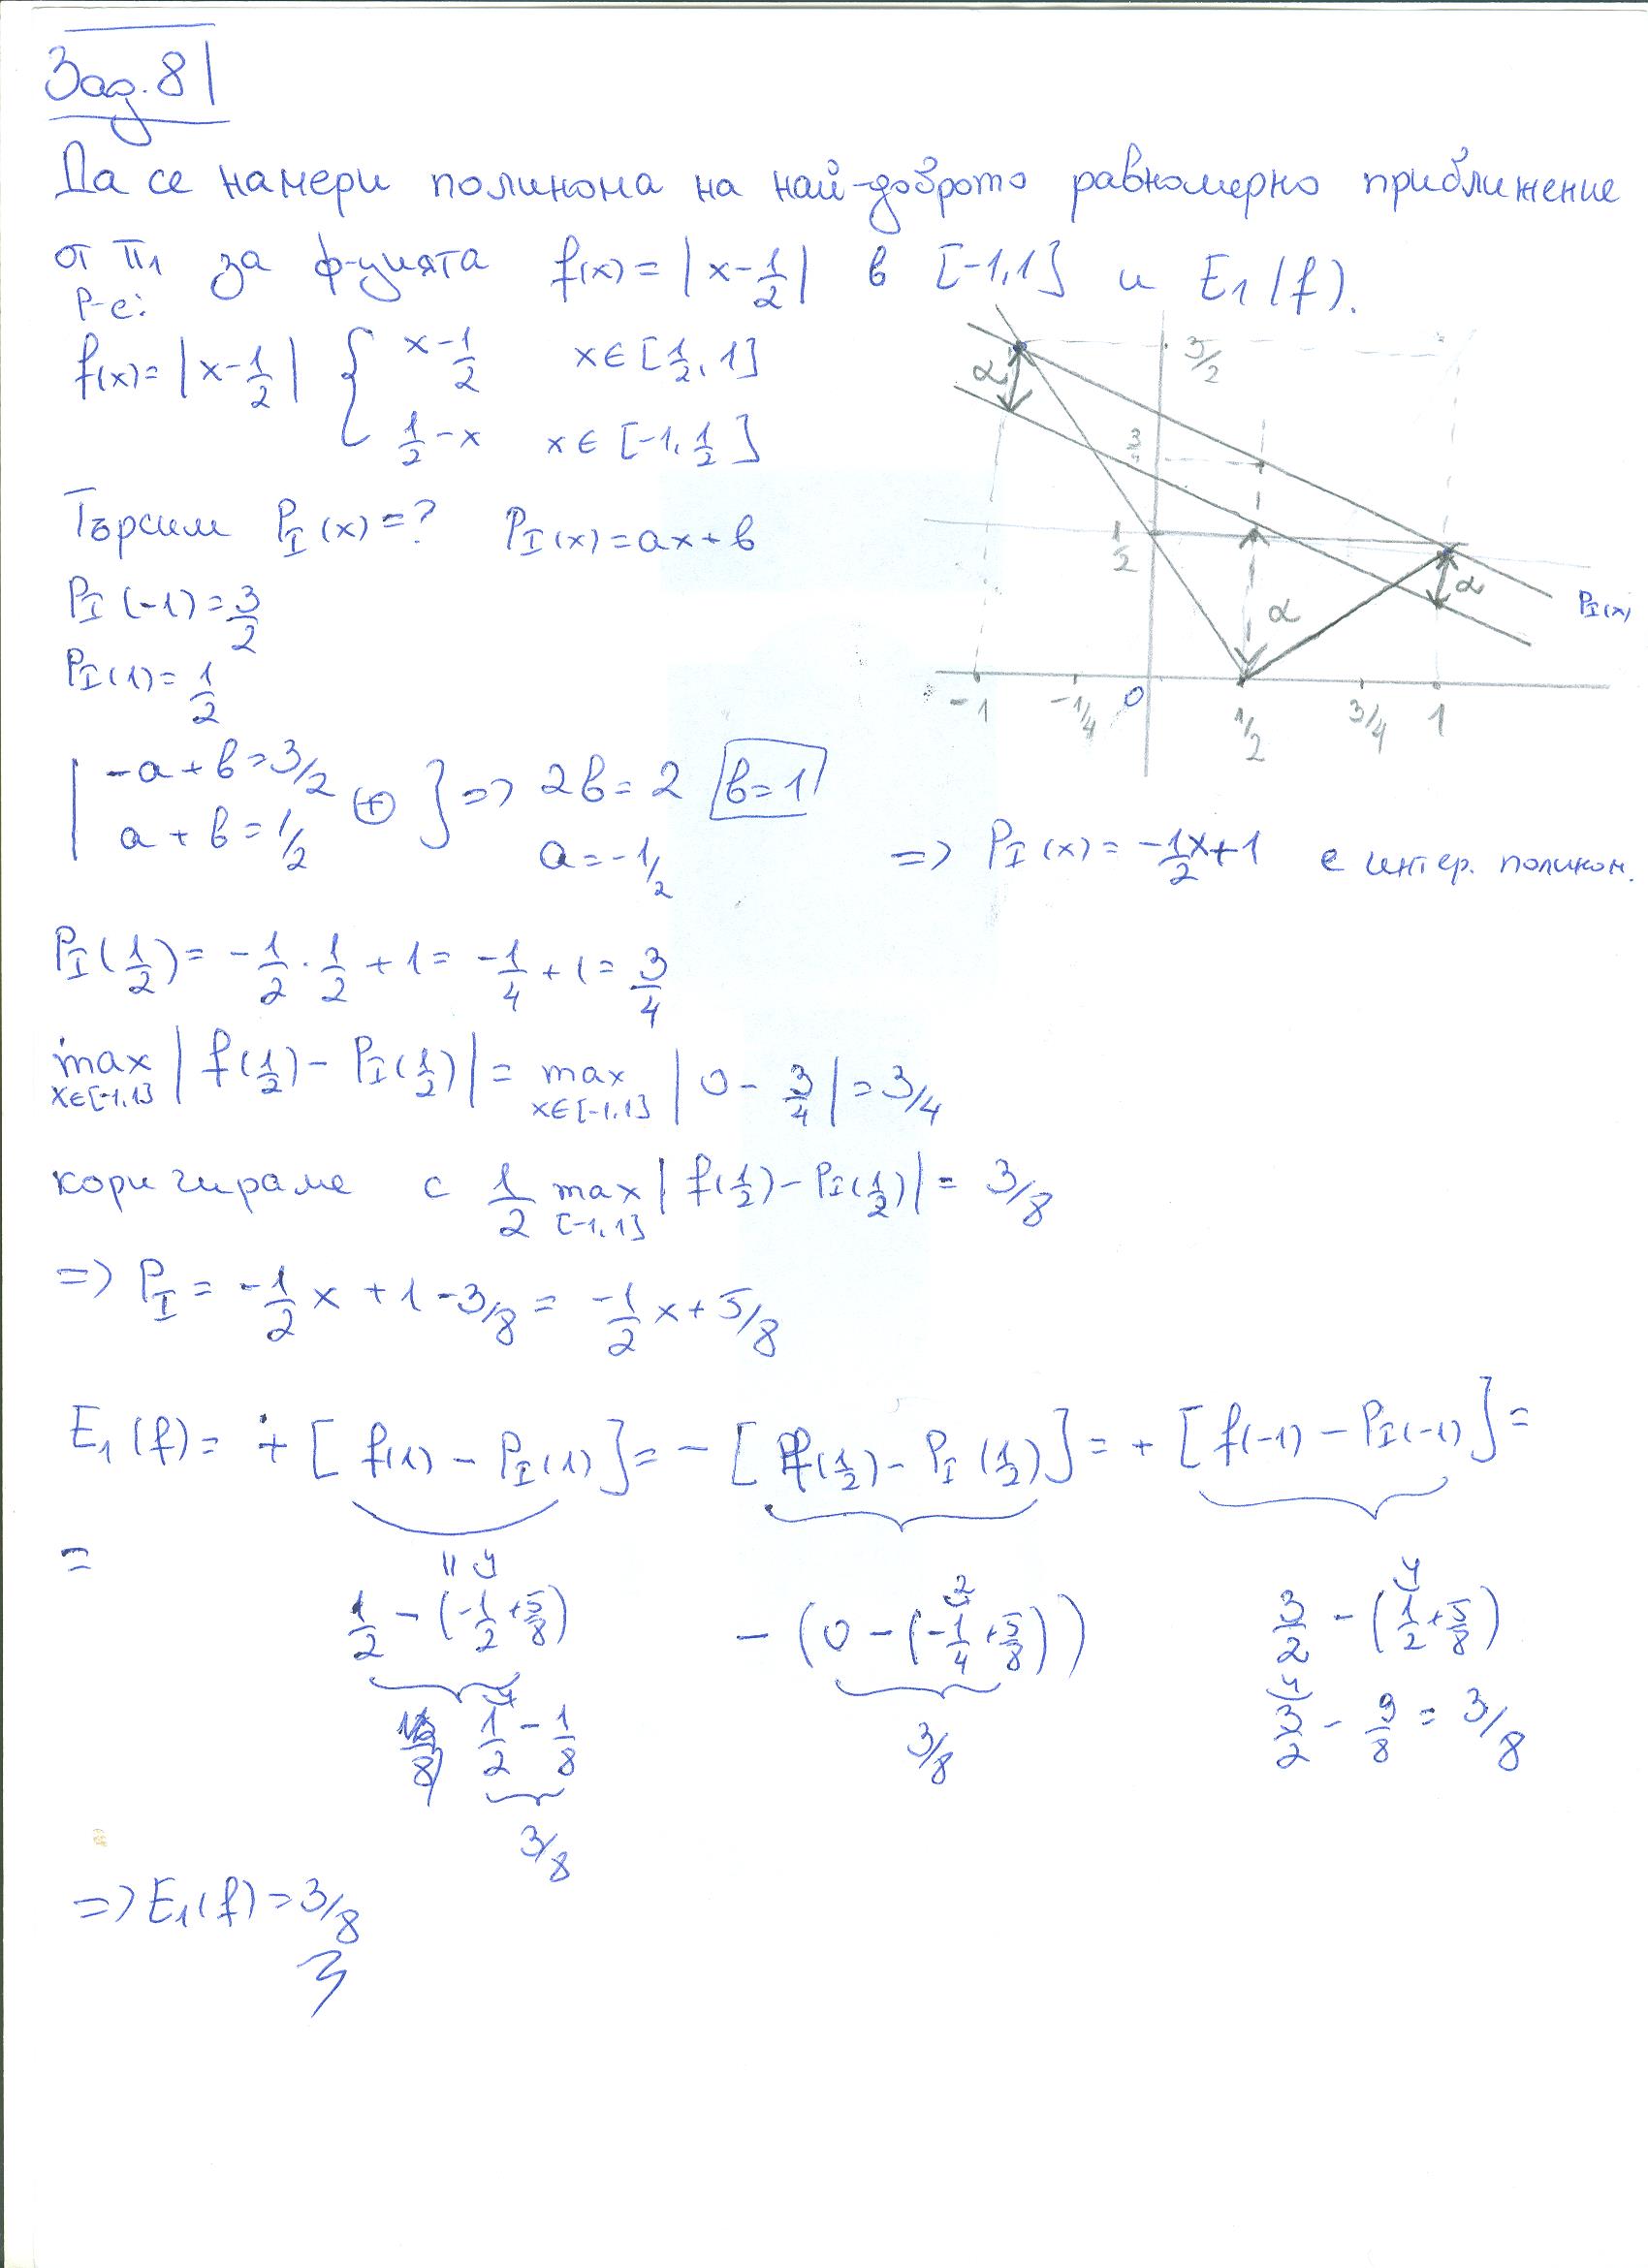 Зад. 8
Да се намери полинома на най-доброто равномерно приближение
от π₁ за ф-цията f(x) = |x - 1/2| в [-1,1] и E₁(f).
Р-е:
f(x) = |x - 1/2| { x - 1/2 x ∈ [1/2, 1]
1/2 - x x ∈ [-1, 1/2]
3/2
α
3/4
1/2
α
α
P_I(x)
-1 -1/4 0 1/2 3/4 1
Търсим P_I(x) = ? P_I(x) = ax + b
P_I(-1) = 3/2
P_I(1) = 1/2
| -a + b = 3/2
a + b = 1/2 ⊕ } => 2b = 2 b = 1
a = -1/2
=> P_I(x) = -1/2 x + 1 е интер. полином.
P_I(1/2) = -1/2 · 1/2 + 1 = -1/4 + 1 = 3/4
max x∈[-1,1] |f(1/2) - P_I(1/2)| = max x∈[-1,1] |0 - 3/4| = 3/4
коригираме с 1/2 max [-1,1] |f(1/2) - P_I(1/2)| = 3/8
=> P_I = -1/2 x + 1 - 3/8 = -1/2 x + 5/8
E₁(f) = + [f(1) - P_I(1)] = - [f(1/2) - P_I(1/2)] = + [f(-1) - P_I(-1)] =
=
1/2 - (-1/2 + 5/8) - (0 - (-1/4 + 5/8)) 3/2 - (1/2 + 5/8)
1/2 - 1/8 3/8 3/2 - 9/8 = 3/8
3/8
=> E₁(f) = 3/8